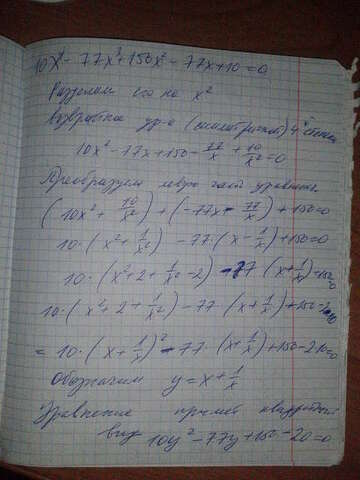 10x⁴ - 77x³ + 150x² - 77x + 10 = 0
Разделим его на x²
Возвратное ур-е (симметричное) 4й степени
10x² - 77x + 150 - 77/x + 10/x² = 0
Преобразуем левую часть уравнения
(10x² + 10/x²) + (-77x - 77/x) + 150 = 0
10·(x² + 1/x²) - 77·(x - 1/x) + 150 = 0
10·(x² + 2 + 1/x² - 2) - 77·(x + 1/x) + 150 = 0
10·(x² + 2 + 1/x²) - 77·(x + 1/x) + 150 - 2·10
= 10·(x + 1/x)² - 77·(x + 1/x) + 150 - 20 = 0
Обозначим y = x + 1/x
Уравнение примет квадратный
вид 10y² - 77y + 150 - 20 = 0